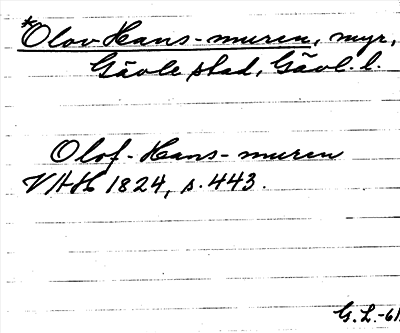 *Olov-Hans-muren, myr,
Gävle stad, Gävl. l.
Olof-Hans-muren
VAH 1824, s. 443.
G.L.-61